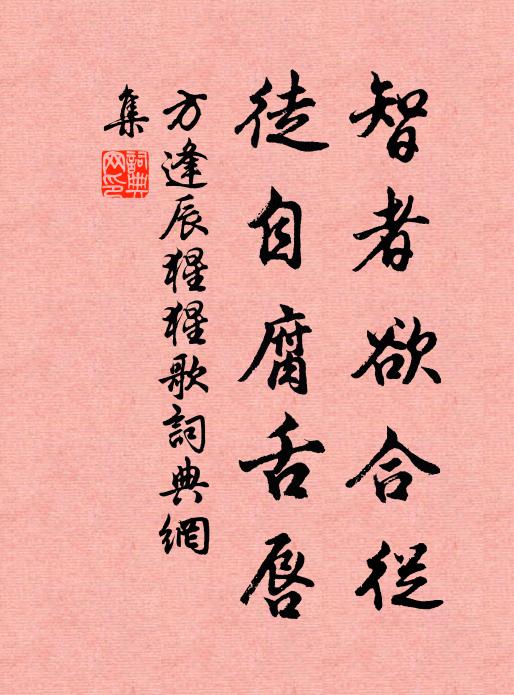 智者欲合從
徒自腐舌唇
方逢辰猩猩歌詞典網
集
詞典
网印